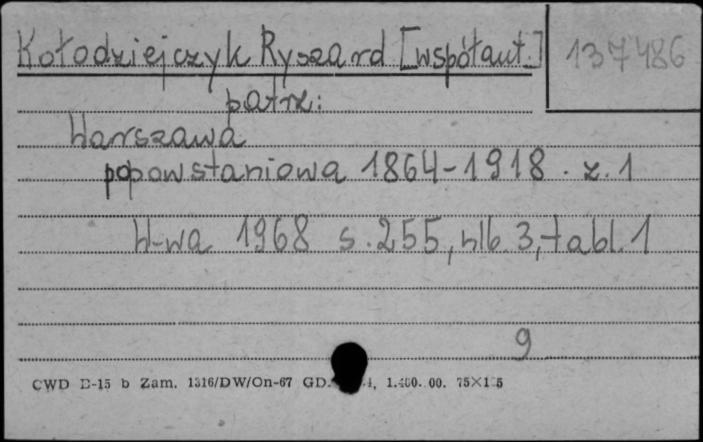 Kołodziejczyk Ryszard [współaut.] 137486
patrz:
Warszawa
popowstaniowa 1864-1918. z. 1
W-wa 1968 s. 255, nlb. 3, tabl. 1
9
CWD D-15 b Zam. 1316/DW/On-67 GD.